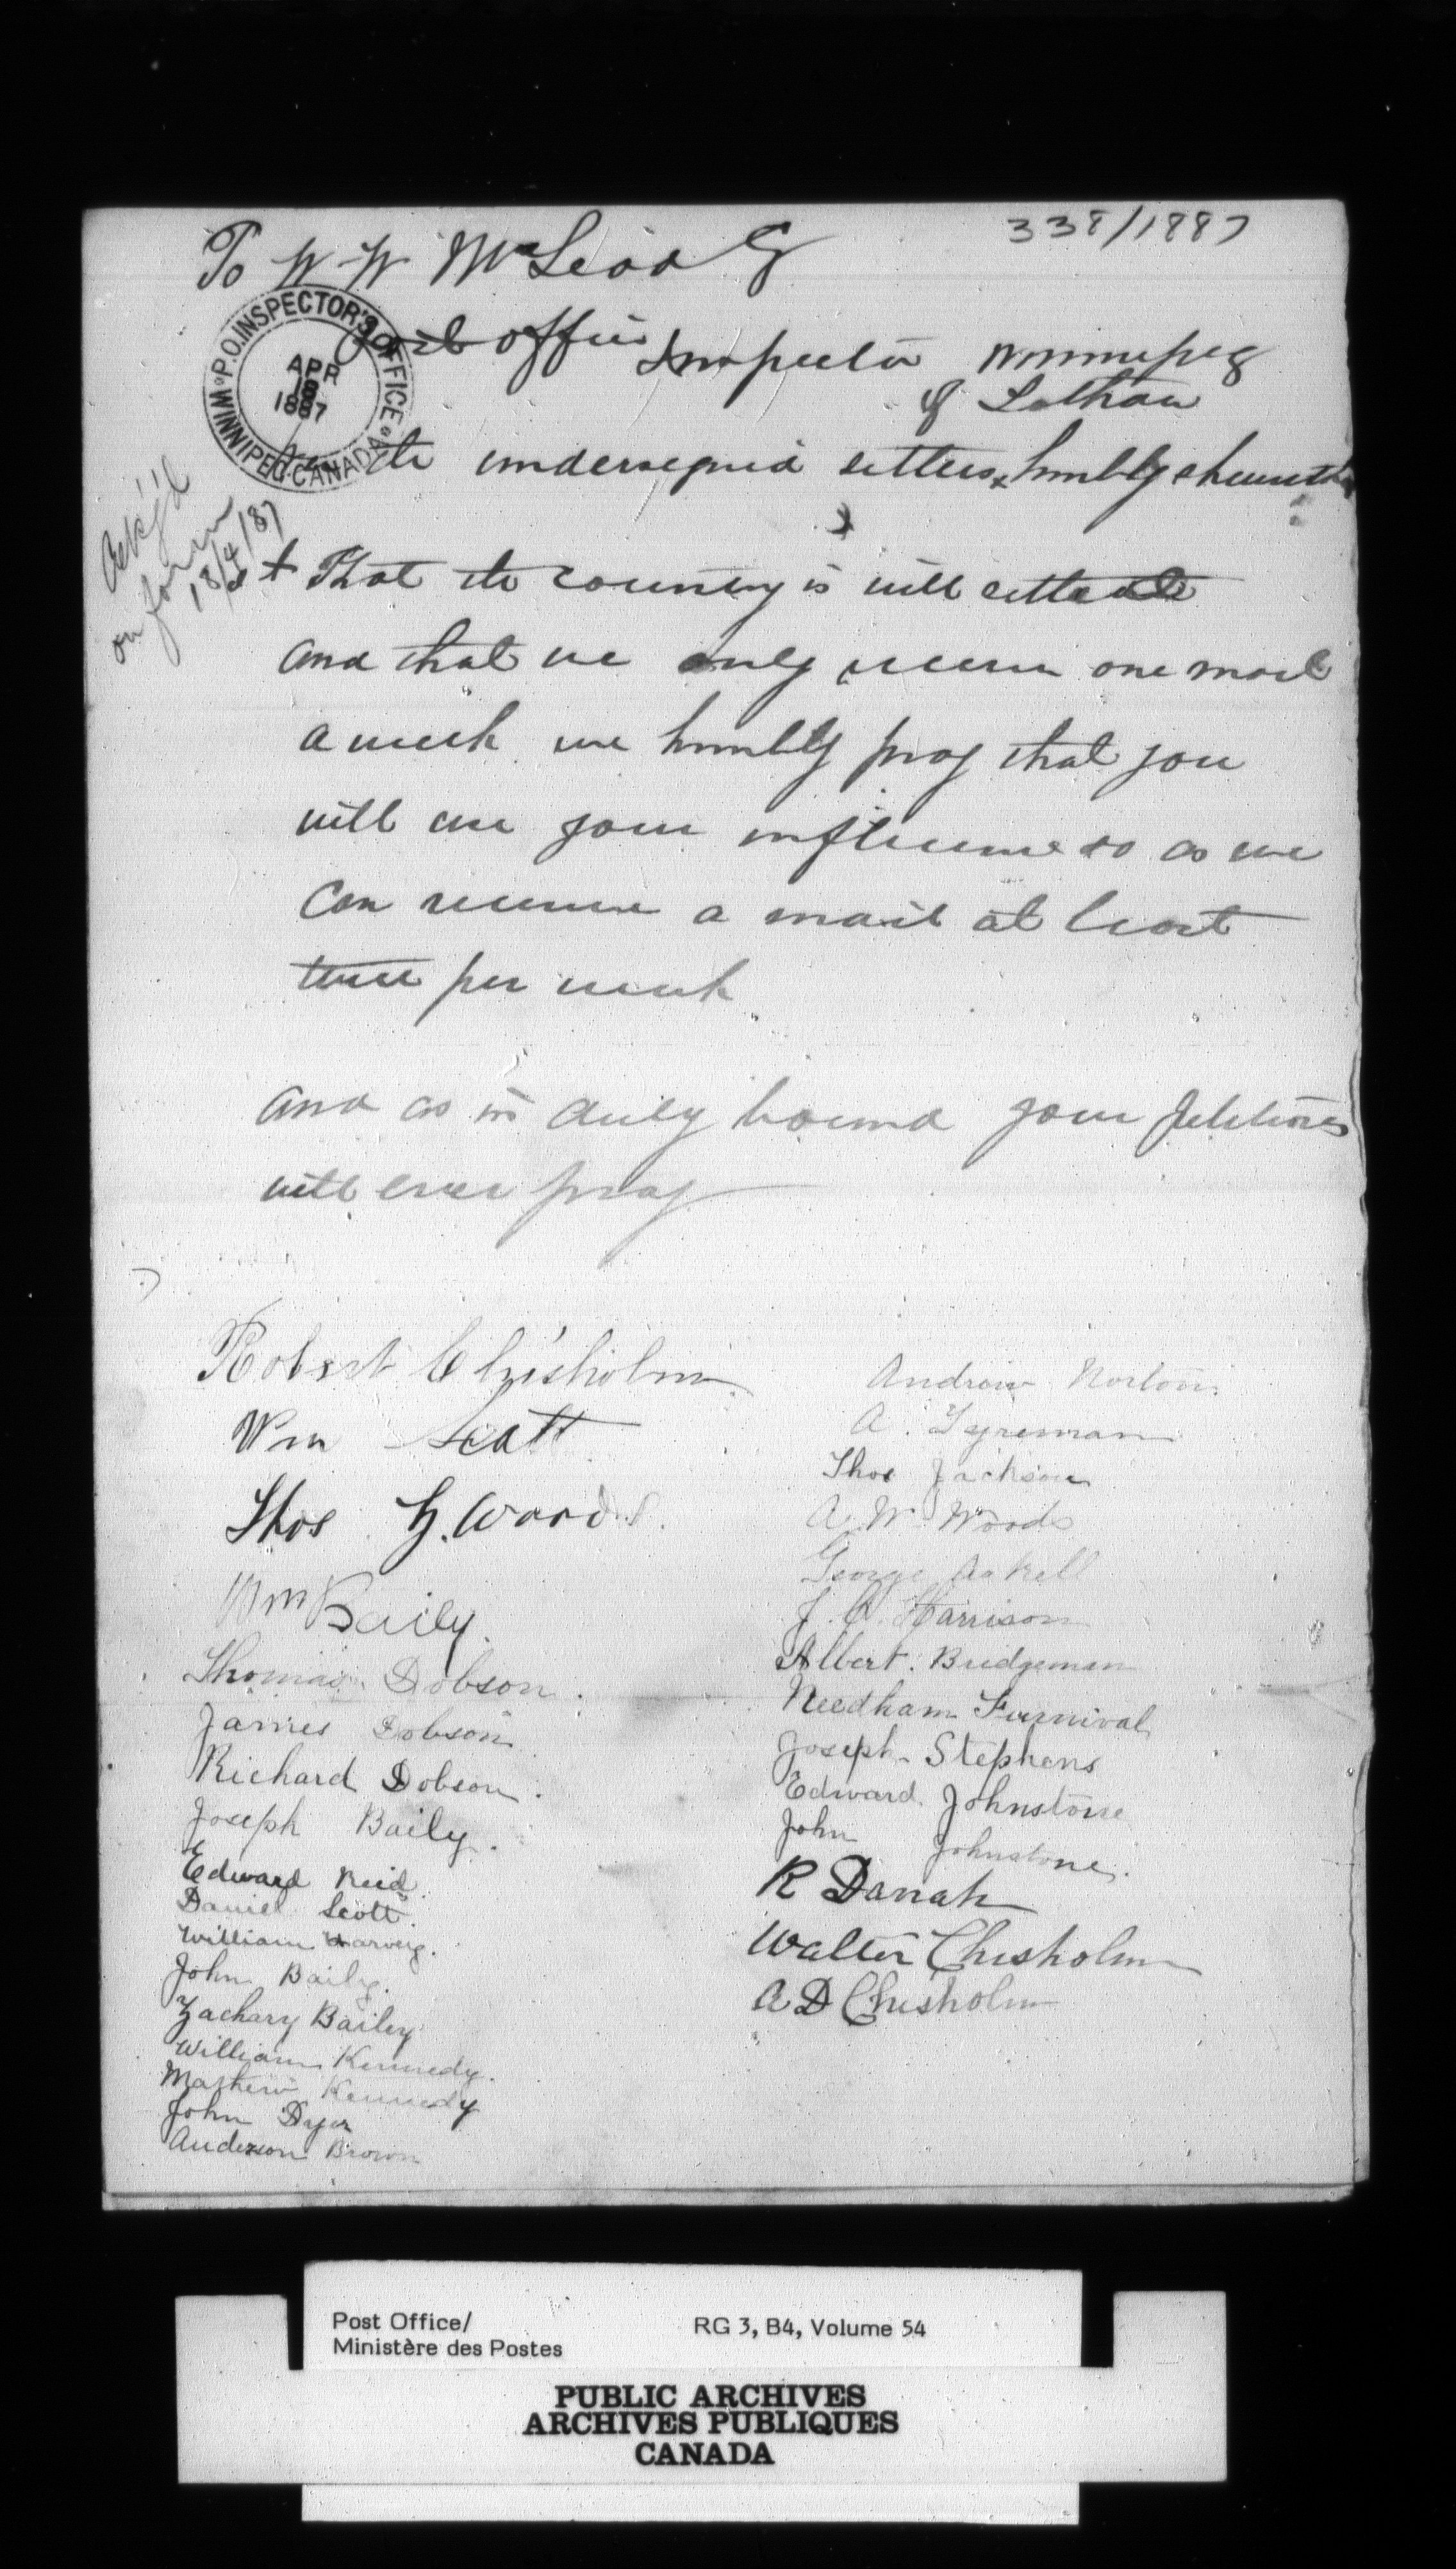 338/1887
To W W McLeod
Post Office Inspector Winnipeg
of Lothair
P.O. INSPECTOR'S OFFICE
WINNIPEG CANADA
APR
18
1887
the undersigned settlers humbly sheweth
Ack'd
on form
18/4/87
That the country is well settled
and that we only receive one mail
a week we humbly pray that you
will use your influence so as we
can receive a mail at least
twice per week
and as in duty bound your petitioners
will ever pray
Robert Chisholm
Wm Scott
Thos G. Woods
Wm Baily
Thomas Dobson
James Dobson
Richard Dobson
Joseph Baily
Edward Reid
Daniel Scott
William Harvey
John Baily
Zachary Bailey
William Kennedy
Mathew Kennedy
John Dyer
Anderson Brown
Andrew Norton
A. Tyreman
Thos Jackson
A W Woods
George Askell
J. C. Harrison
Albert Bridgeman
Needham Furnival
Joseph Stephens
Edward Johnstone
John Johnstone
R Danah
Walter Chisholm
A D Chisholm
Post Office/
Ministère des Postes
RG 3, B4, Volume 54
PUBLIC ARCHIVES
ARCHIVES PUBLIQUES
CANADA